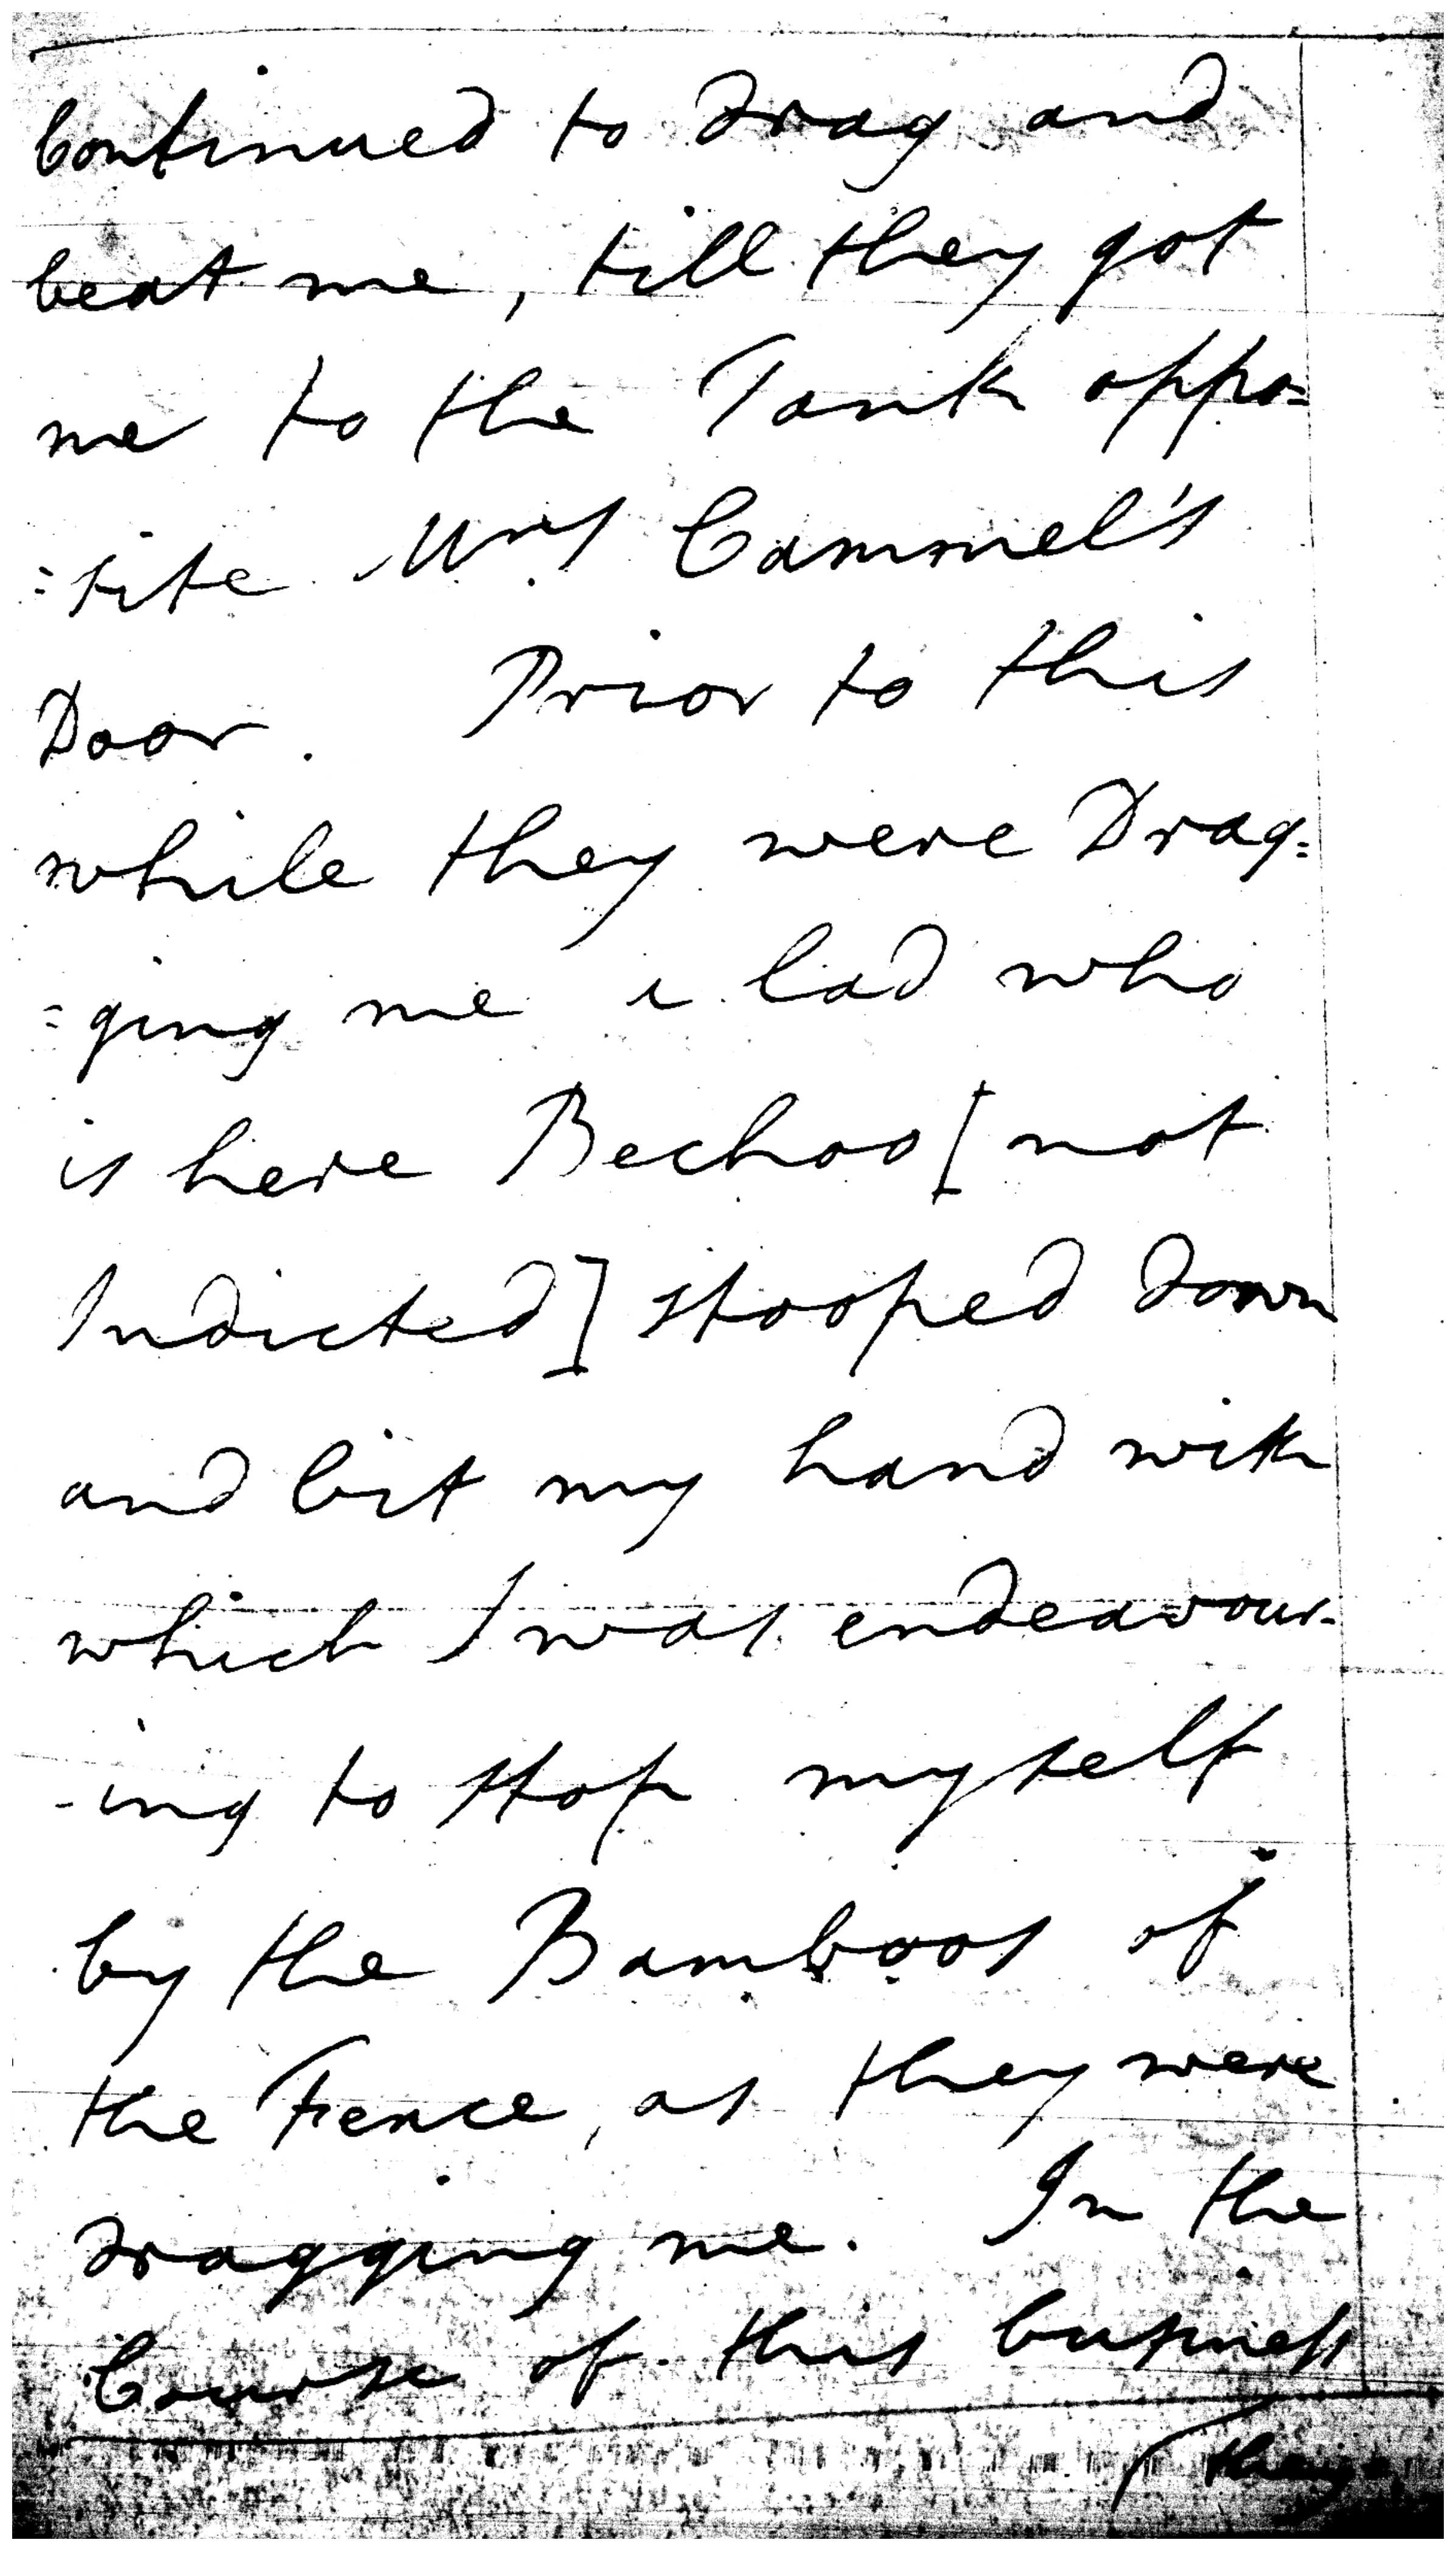 Continued to drag and
beat me, till they got
me to the Tank oppo=
=site Mrs Cammel's
Door. Prior to this
while they were Drag=
=ging me a lad who
is here Bechoo [not
Indicted] stooped down
and bit my hand with
which I was endeavour-
-ing to stop myself
by the Bamboos of
the Fence, as they were
dragging me. In the
Course of this business
they